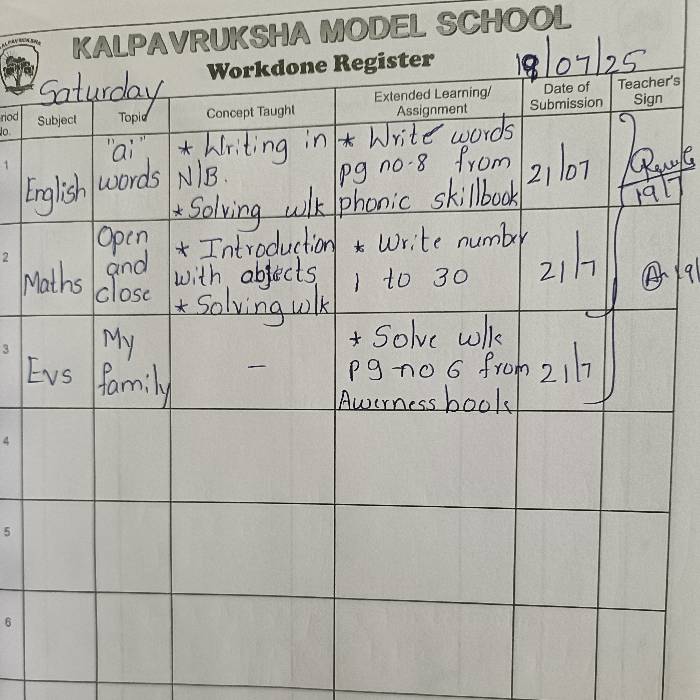 KALPAVRUKSHA
KALPAVRUKSHA MODEL SCHOOL
Workdone Register
18/07/25
Saturday
riod No.
Subject
Topic
Concept Taught
Extended Learning/ Assignment
Date of Submission
Teacher's Sign
1
English
"ai" words
* Writing in N/B.
* Solving w/k
* Write words
pg no-8 from
phonic skillbook
21/07
19/7
2
Maths
Open and close
* Introduction
with abjects
* Solving w/k
* Write number
1 to 30
21/7
19/
3
Evs
My family
-
* Solve w/k
pg no 6 from
Awerness book
21/7
4
5
6